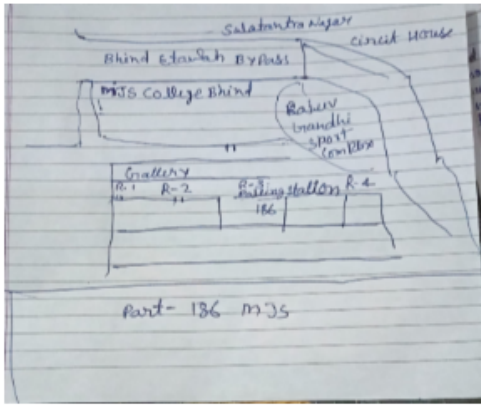 Salatantra Nagar
Circit House
Bhind Etawah ByPass
MJS College Bhind
Rajiv
Gandhi
Sport
Complex
Gallery
R-1 R-2 R-3 R-4
Polling Station
186
Part- 186 MJS